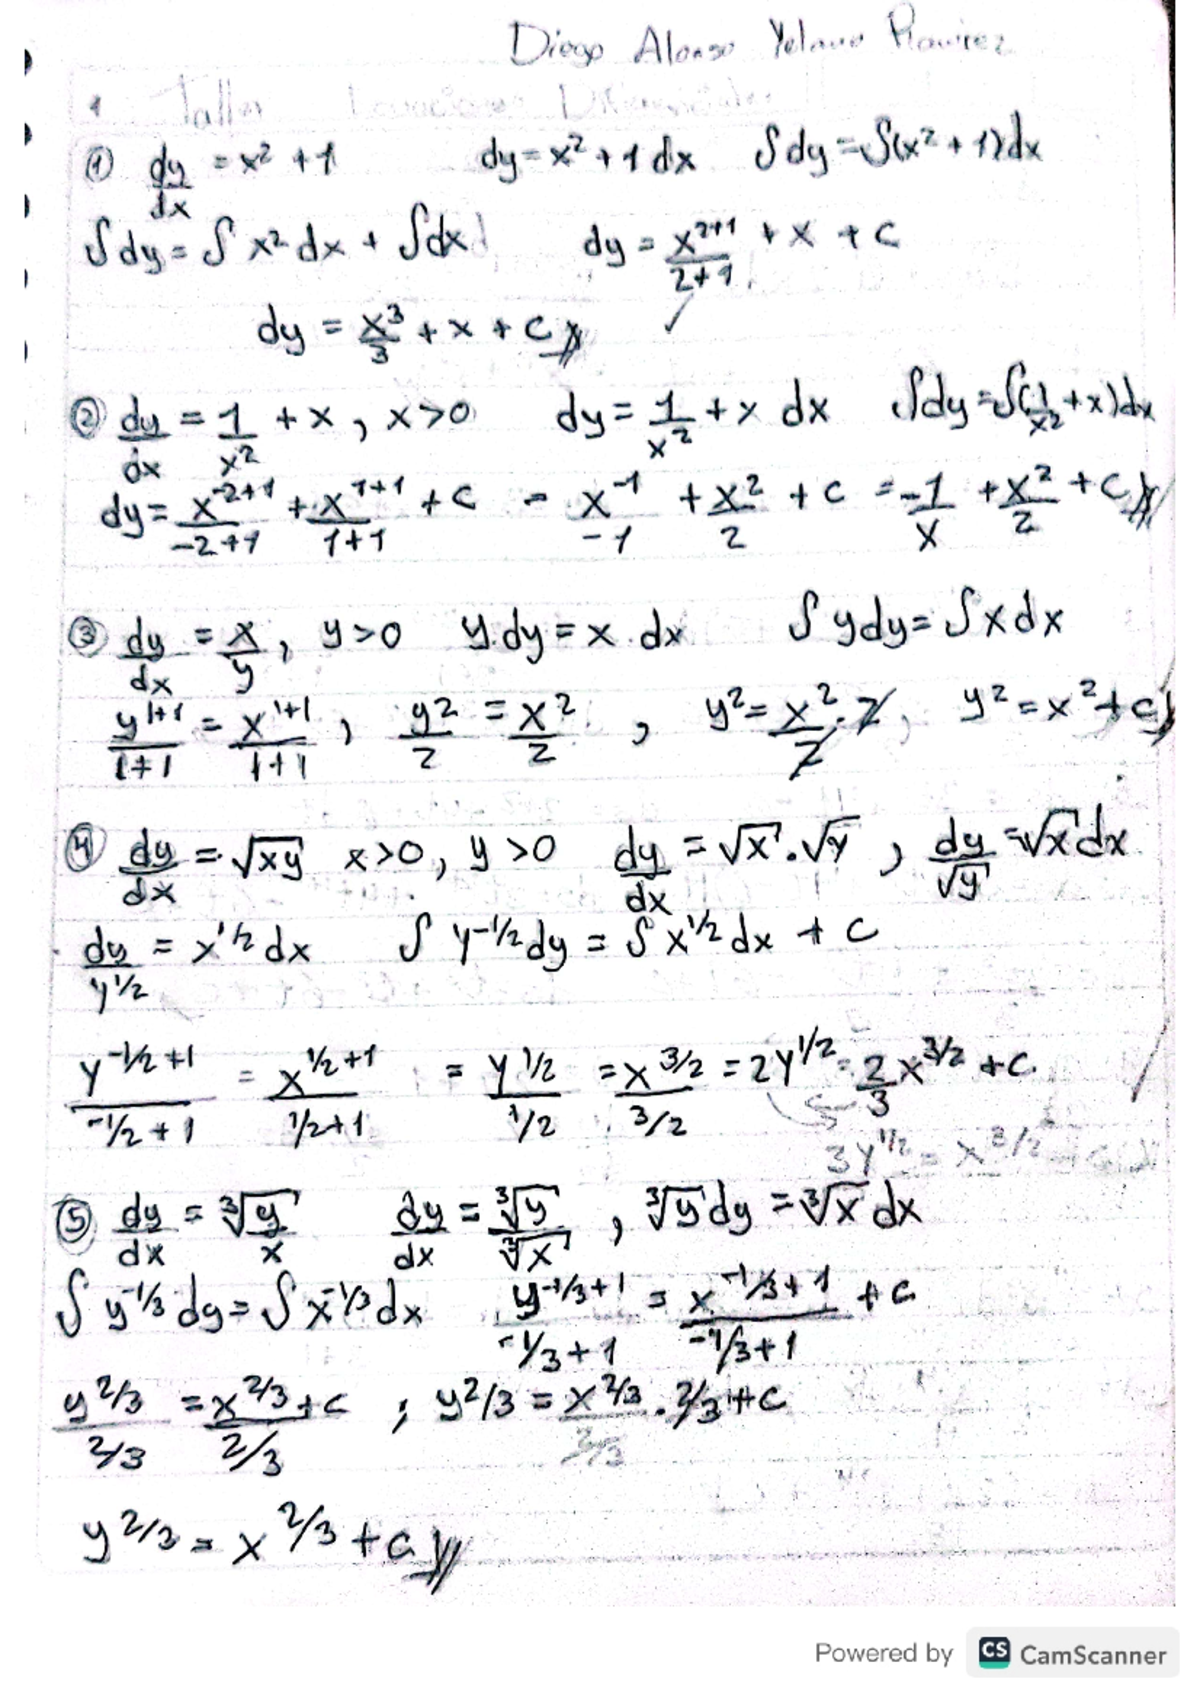 Diego Alonso Ramirez
1 Taller Ecuaciones Diferenciales
① dy/dx = x² + 1 dy = x² + 1 dx ∫dy = ∫(x² + 1)dx
∫dy = ∫ x² dx + ∫dx dy = x²⁺¹/2+1 + x + c
dy = x³/3 + x + c
② dy/dx = 1/x² + x , x>0 dy = 1/x² + x dx ∫dy = ∫(1/x² + x)dx
dy = x⁻²⁺¹/-2+1 + x¹⁺¹/1+1 + c = x⁻¹/-1 + x²/2 + c = -1/x + x²/2 + c
③ dy/dx = x/y , y>0 y.dy = x.dx ∫ydy = ∫xdx
y¹⁺¹/1+1 = x¹⁺¹/1+1 , y²/2 = x²/2 , y² = x²/2 . 2 , y² = x² + c
④ dy/dx = √xy x>0, y>0 dy/dx = √x . √y , dy/√y = √x dx
dy/y^1/2 = x^1/2 dx ∫ y^-1/2 dy = ∫ x^1/2 dx + c
y^-1/2+1/-1/2+1 = x^1/2+1/1/2+1 = y^1/2/1/2 = x^3/2/3/2 = 2y^1/2 = 2/3 x^3/2 + c
3y^1/2 = x^3/2
⑤ dy/dx = ∛y/x dy/dx = ∛y/∛x , ∛y dy = ∛x dx
∫ y^-1/3 dy = ∫ x^-1/3 dx y^-1/3+1/-1/3+1 = x^-1/3+1/-1/3+1 + c
y^2/3/2/3 = x^2/3 + c/2/3 ; y^2/3 = x^2/3/2/3 . 2/3 + c
y^2/3 = x^2/3 + c
Powered by CS CamScanner